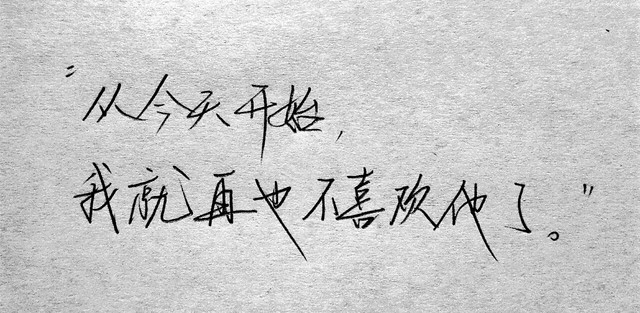 “从今天开始，
我就再也不喜欢他了。”